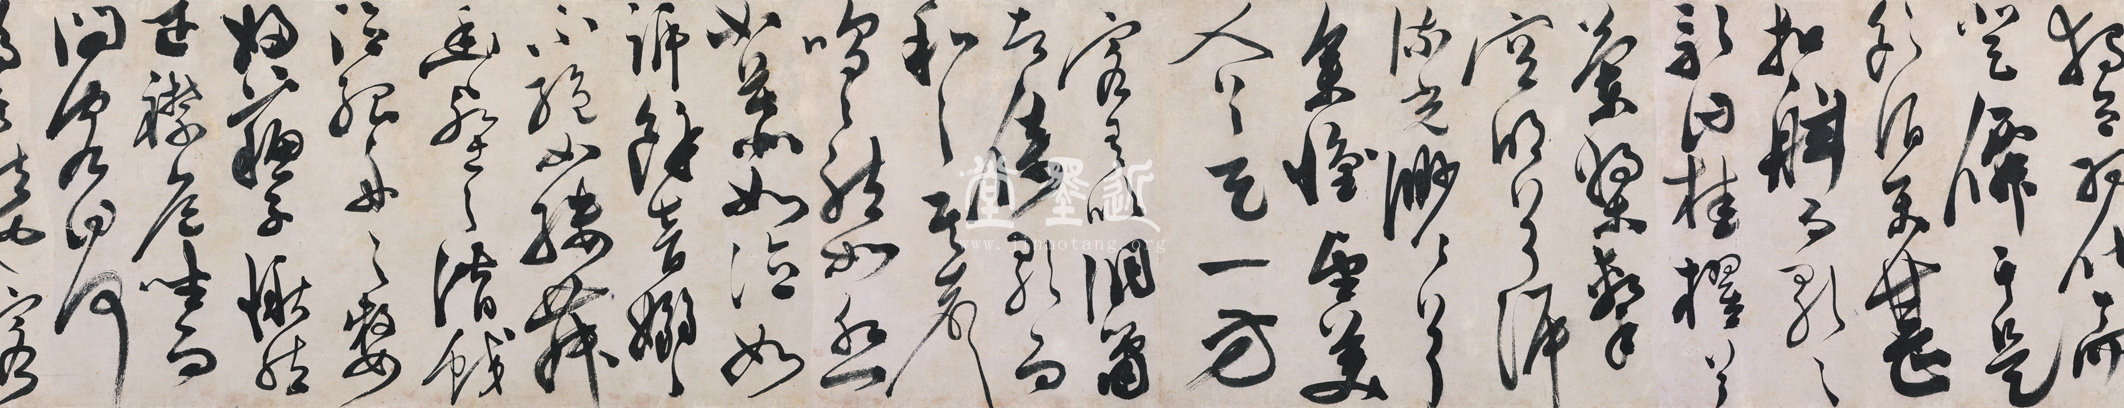 獨立羽化而
登僊於是
飲酒樂甚
扣舷而歌之
歌曰桂櫂兮
蘭槳擊
空明兮泝
流光渺渺兮
余懷望美
人兮天一方
客有吹洞簫
者倚歌而
和之其聲
嗚嗚然如怨
如慕如泣如
訴餘音嫋嫋
不絕如縷舞
幽壑之潛蛟
泣孤舟之嫠
婦蘇子愀然
正襟危坐而
問客曰何
為其然也客
近墨堂
www.jinmotang.org